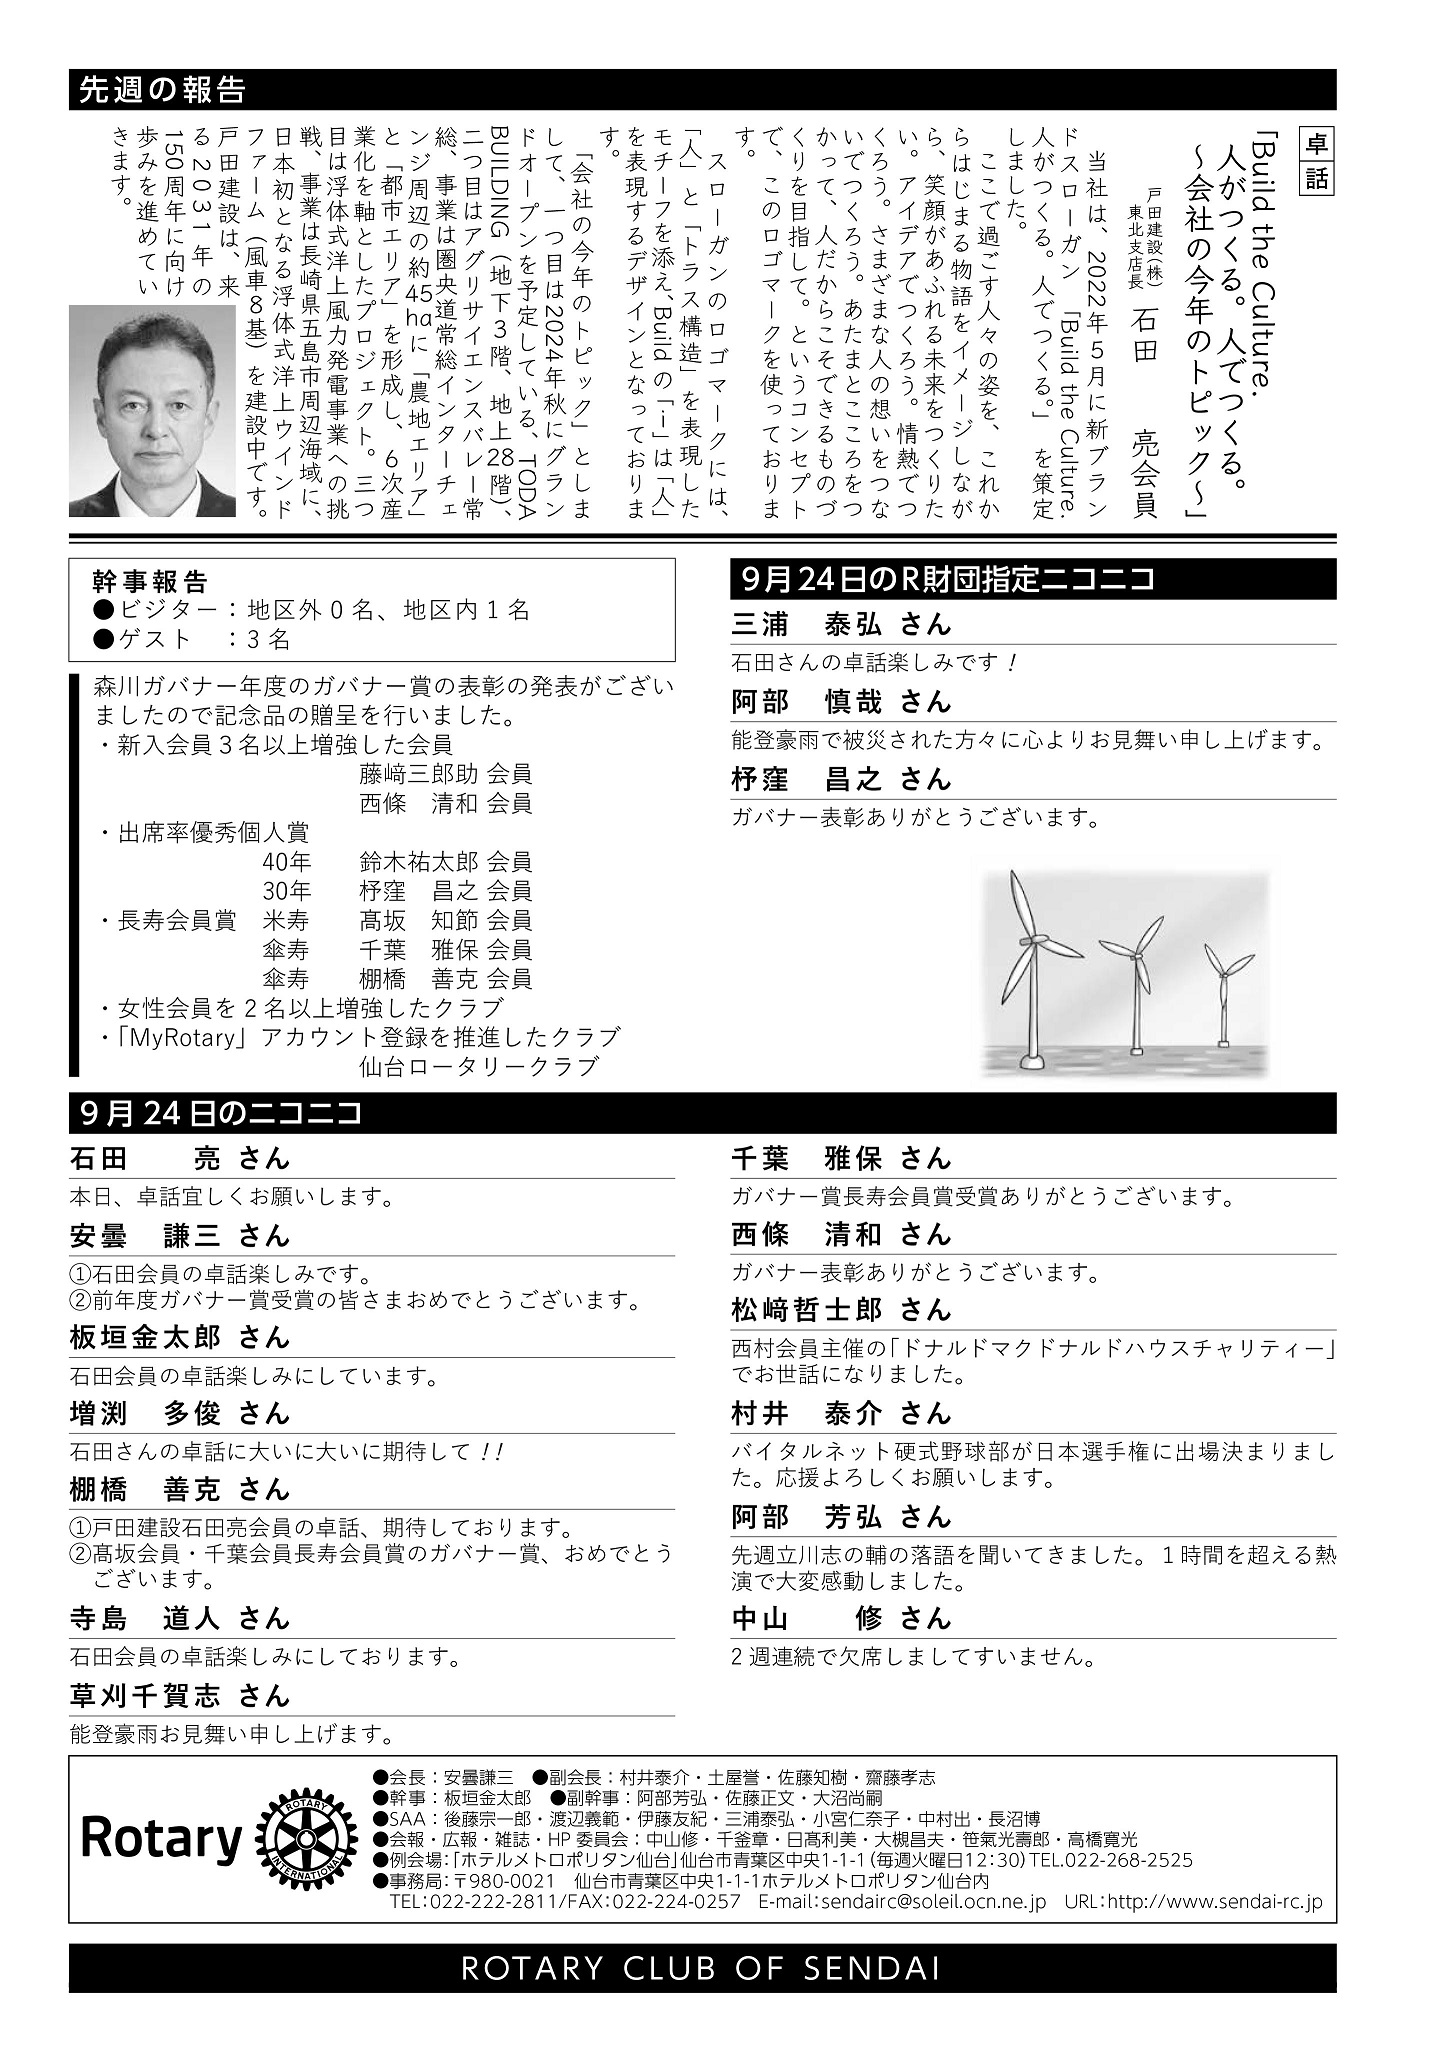 先週の報告
卓話
「Build the Culture.
人がつくる。人でつくる。
～会社の今年のトピック～」
戸田建設(株)
東北支店長
石田　亮会員
当社は、2022年５月に新ブラン
ドスローガン「Build the Culture.
人がつくる。人でつくる。」を策定
しました。
ここで過ごす人々の姿を、これか
らはじまる物語をイメージしなが
ら、笑顔があふれる未来をつくりた
い。アイデアでつくろう。情熱でつ
くろう。さまざまな人の想いをつな
いでつくろう。あたまとこころをつ
かって、人だからこそできるものづ
くりを目指して。というコンセプト
で、このロゴマークを使っておりま
す。
スローガンのロゴマークには、
「人」と「トラス構造」を表現した
モチーフを添え、Buildの「i」は「人」
を表現するデザインとなっておりま
す。
「会社の今年のトピック」としま
して、一つ目は2024年秋にグラン
ドオープンを予定している、TODA
BUILDING（地下３階、地上28階）、
二つ目はアグリサイエンスバレー常
総、事業は圏央道常総インターチェ
ンジ周辺の約45haに「農地エリア」
と「都市エリア」を形成し、６次産
業化を軸としたプロジェクト。三つ
目は浮体式洋上風力発電事業への挑
戦、事業は長崎県五島市周辺海域に、
日本初となる浮体式洋上ウインド
ファーム（風車８基）を建設中です。
戸田建設は、来
る２０３１年の
150周年に向け
歩みを進めてい
きます。
幹事報告
●ビジター：地区外０名、地区内１名
●ゲスト　：３名
森川ガバナー年度のガバナー賞の表彰の発表がござい
ましたので記念品の贈呈を行いました。
・新入会員３名以上増強した会員
藤﨑三郎助 会員
西條　清和 会員
・出席率優秀個人賞
40年　鈴木祐太郎 会員
30年　杼窪　昌之 会員
・長寿会員賞　米寿　髙坂　知節 会員
傘寿　千葉　雅保 会員
傘寿　棚橋　善克 会員
・女性会員を２名以上増強したクラブ
・「MyRotary」アカウント登録を推進したクラブ
仙台ロータリークラブ
９月24日のＲ財団指定ニコニコ
三浦　泰弘 さん
石田さんの卓話楽しみです！
阿部　慎哉 さん
能登豪雨で被災された方々に心よりお見舞い申し上げます。
杼窪　昌之 さん
ガバナー表彰ありがとうございます。
９月24日のニコニコ
石田　亮 さん
本日、卓話宜しくお願いします。
安曇　謙三 さん
①石田会員の卓話楽しみです。
②前年度ガバナー賞受賞の皆さまおめでとうございます。
板垣金太郎 さん
石田会員の卓話楽しみにしています。
増渕　多俊 さん
石田さんの卓話に大いに大いに期待して！！
棚橋　善克 さん
①戸田建設石田亮会員の卓話、期待しております。
②髙坂会員・千葉会員長寿会員賞のガバナー賞、おめでとう
ございます。
寺島　道人 さん
石田会員の卓話楽しみにしております。
草刈千賀志 さん
能登豪雨お見舞い申し上げます。
千葉　雅保 さん
ガバナー賞長寿会員賞受賞ありがとうございます。
西條　清和 さん
ガバナー表彰ありがとうございます。
松﨑哲士郎 さん
西村会員主催の「ドナルドマクドナルドハウスチャリティー」
でお世話になりました。
村井　泰介 さん
バイタルネット硬式野球部が日本選手権に出場決まりまし
た。応援よろしくお願いします。
阿部　芳弘 さん
先週立川志の輔の落語を聞いてきました。１時間を超える熱
演で大変感動しました。
中山　修 さん
２週連続で欠席しましてすいません。
Rotary
ROTARY
INTERNATIONAL
●会長：安曇謙三　●副会長：村井泰介・土屋誉・佐藤知樹・齋藤孝志
●幹事：板垣金太郎　●副幹事：阿部芳弘・佐藤正文・大沼尚嗣
●SAA：後藤宗一郎・渡辺義範・伊藤友紀・三浦泰弘・小宮仁奈子・中村出・長沼博
●会報・広報・雑誌・HP委員会：中山修・千釜章・日髙利美・大槻昌夫・笹氣光壽郎・高橋寛光
●例会場：「ホテルメトロポリタン仙台」仙台市青葉区中央1-1-1（毎週火曜日12：30）TEL.022-268-2525
●事務局：〒980-0021　仙台市青葉区中央1-1-1ホテルメトロポリタン仙台内
TEL：022-222-2811/FAX：022-224-0257　E-mail：sendairc@soleil.ocn.ne.jp　URL：http://www.sendai-rc.jp
ROTARY CLUB OF SENDAI